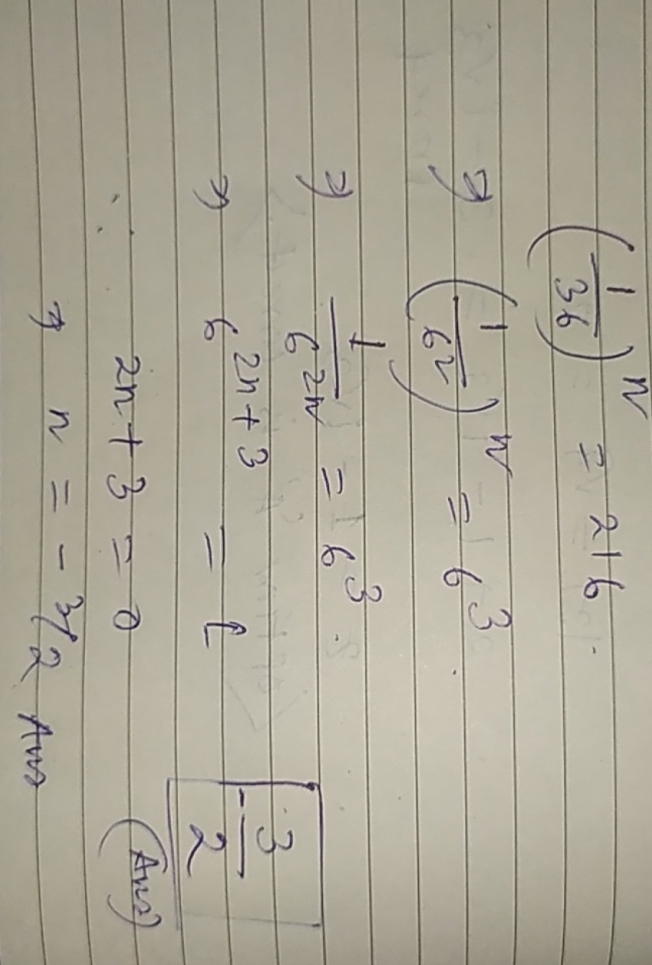 (1/36)^n = 216.
⇒ (1/6²)^n = 6³
⇒ 1/6^2n = 6³.
⇒ 6^2n+3 = 1
∴ 2n + 3 = 0
⇒ n = - 3/2 Ans
- 3/2
(Ans)